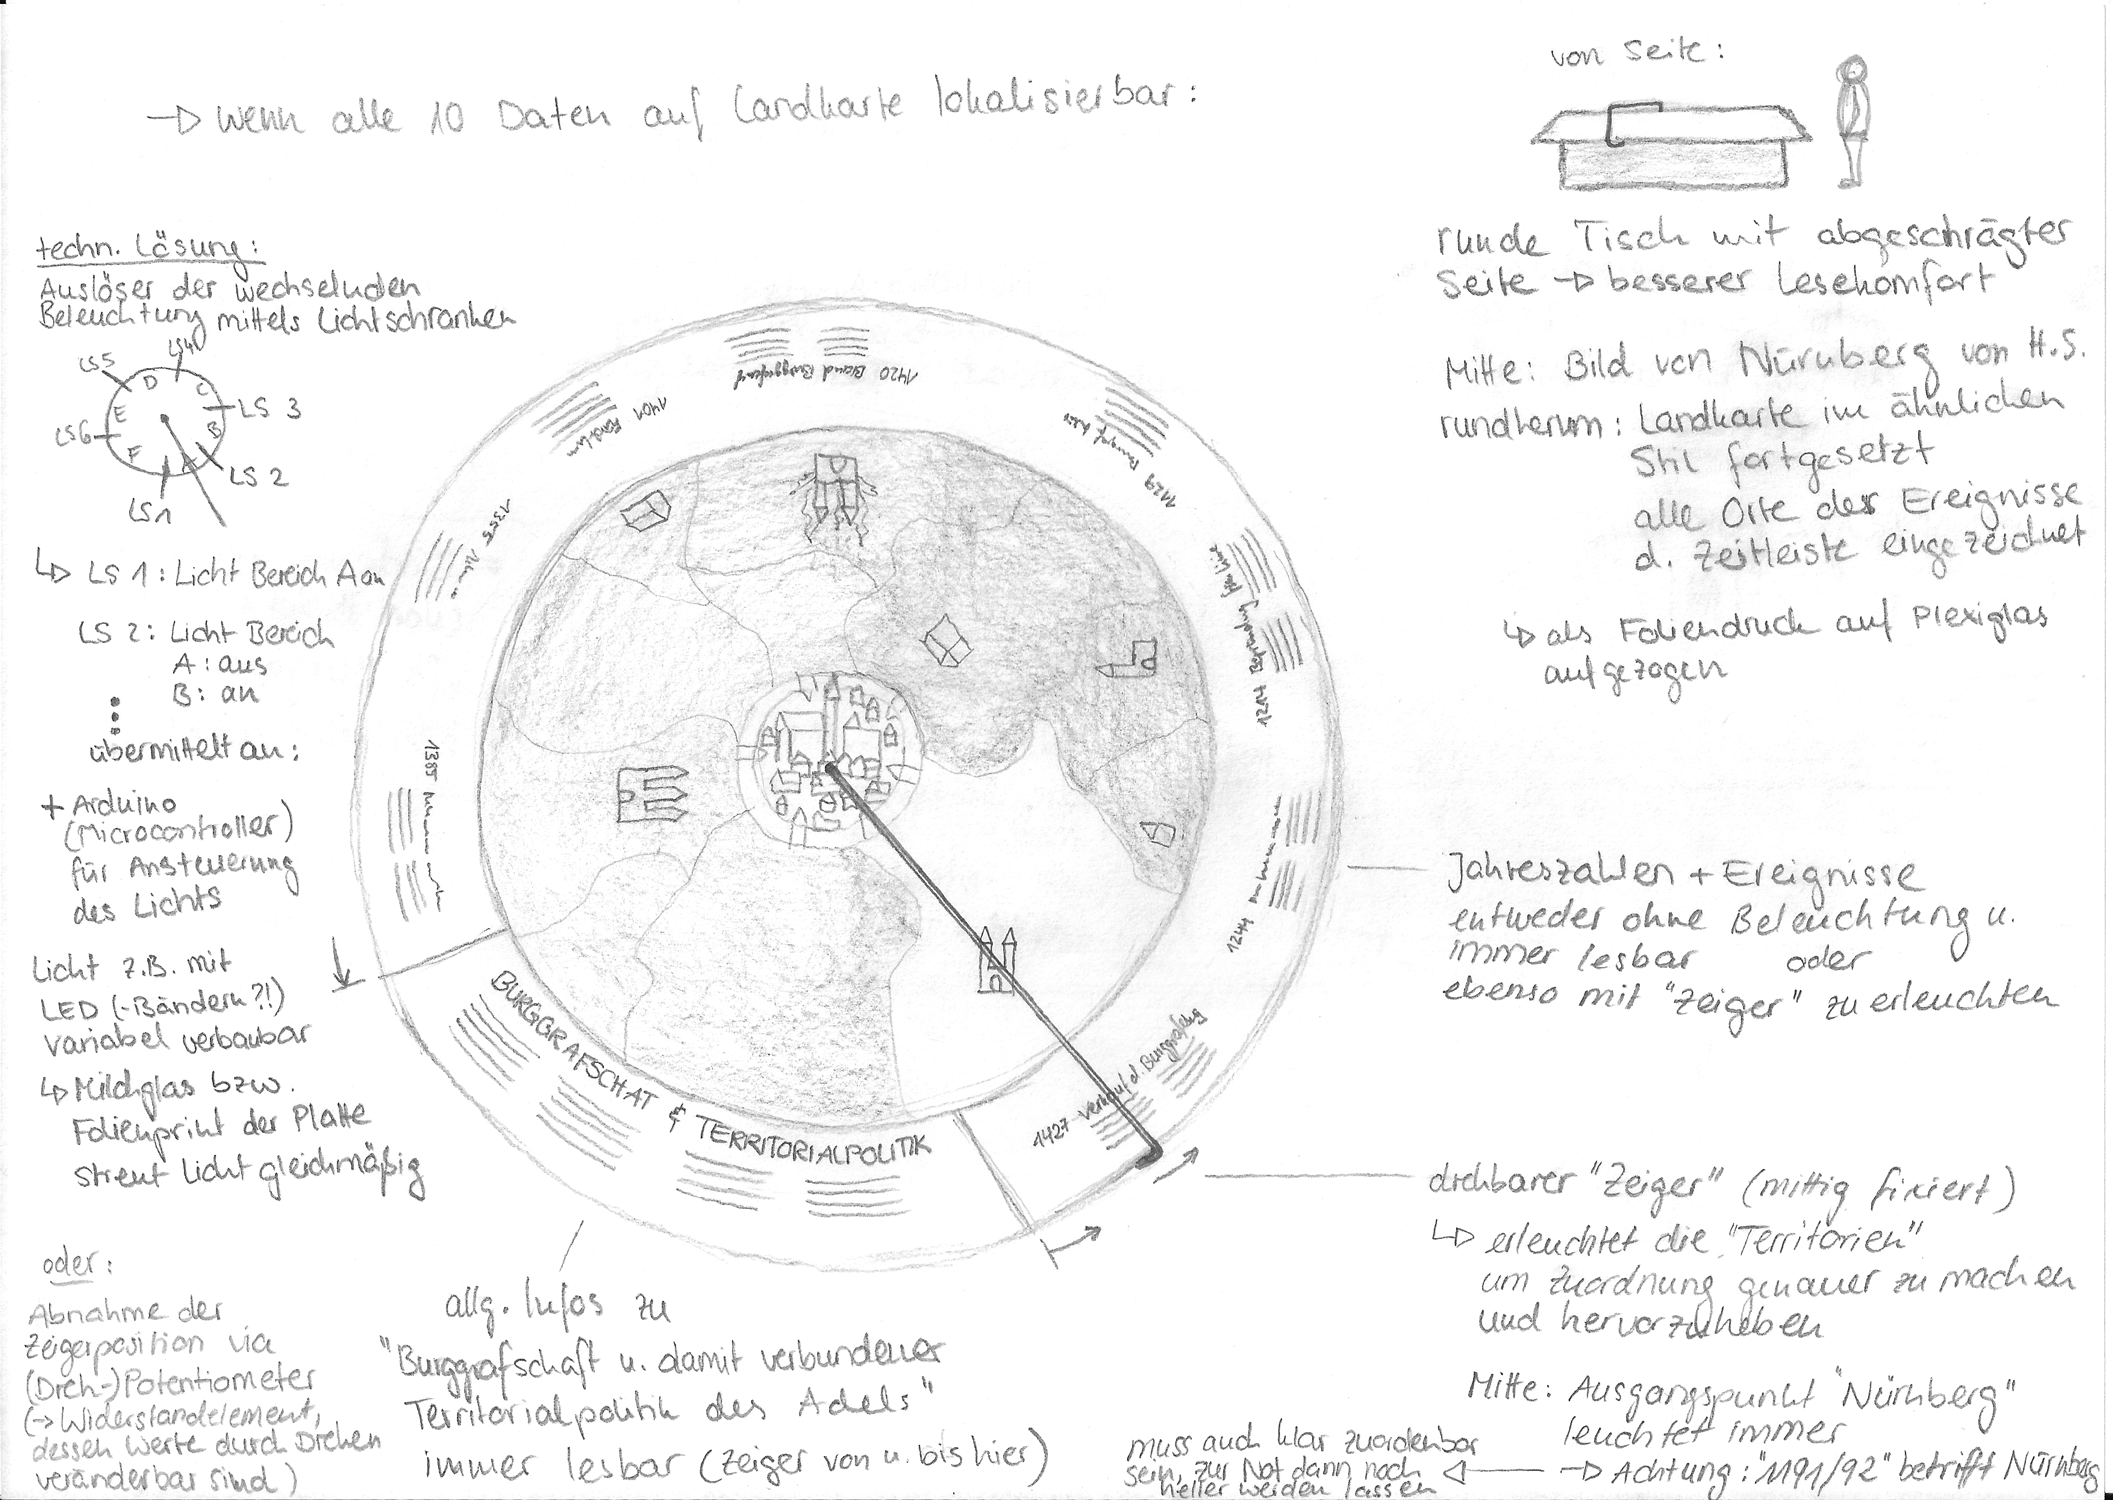 → wenn alle 10 Daten auf Landkarte lokalisierbar:
von Seite:
runde Tisch mit abgeschrägter
Seite → besserer Lesekomfort
Mitte: Bild von Nürnberg von H.S.
rundherum: Landkarte im ähnlichen
Stil fortgesetzt
alle Orte der Ereignisse
d. Zeitleiste eingezeichnet
↳ als Foliendruck auf Plexiglas
aufgezogen
techn. Lösung:
Auslöser der wechselnden
Beleuchtung mittels Lichtschranken
LS5
LS4
LS 3
LS6
LS 2
LS1
D
C
E
B
F
A
↳ LS 1: Licht Bereich A an
LS 2: Licht Bereich
A: aus
B: an
übermittelt an:
+ Arduino
(Microcontroller)
für Ansteuerung
des Lichts
Licht z.B. mit
LED (-Bändern?!)
variabel verbaubar
↳ Milchglas bzw.
Folienprint der Platte
streut Licht gleichmäßig
oder:
Abnahme der
Zeigerposition via
(Dreh-)Potentiometer
(→ Widerstandelement,
dessen Werte durch Drehen
veränderbar sind)
1420 Brand Burggrafenhof
1401
1355
1385
1214
1244
1427 Verkauf d. Burggrafenburg
BURGGRAFSCHAT & TERRITORIALPOLITIK
Jahreszahlen + Ereignisse
entweder ohne Beleuchtung u.
immer lesbar oder
ebenso mit "Zeiger" zu erleuchten
drehbarer "Zeiger" (mittig fixiert)
↳ erleuchtet die "Territorien"
um Zuordnung genauer zu machen
und hervorzuheben
Mitte: Ausgangspunkt "Nürnberg"
leuchtet immer
→ Achtung: "1191/92" betrifft Nürnberg
muss auch klar zuordenbar
sein, zur Not dann noch
heller werden lassen
allg. Infos zu
"Burggrafschaft u. damit verbundener
Territorialpolitik des Adels"
immer lesbar (Zeiger von u. bis hier)